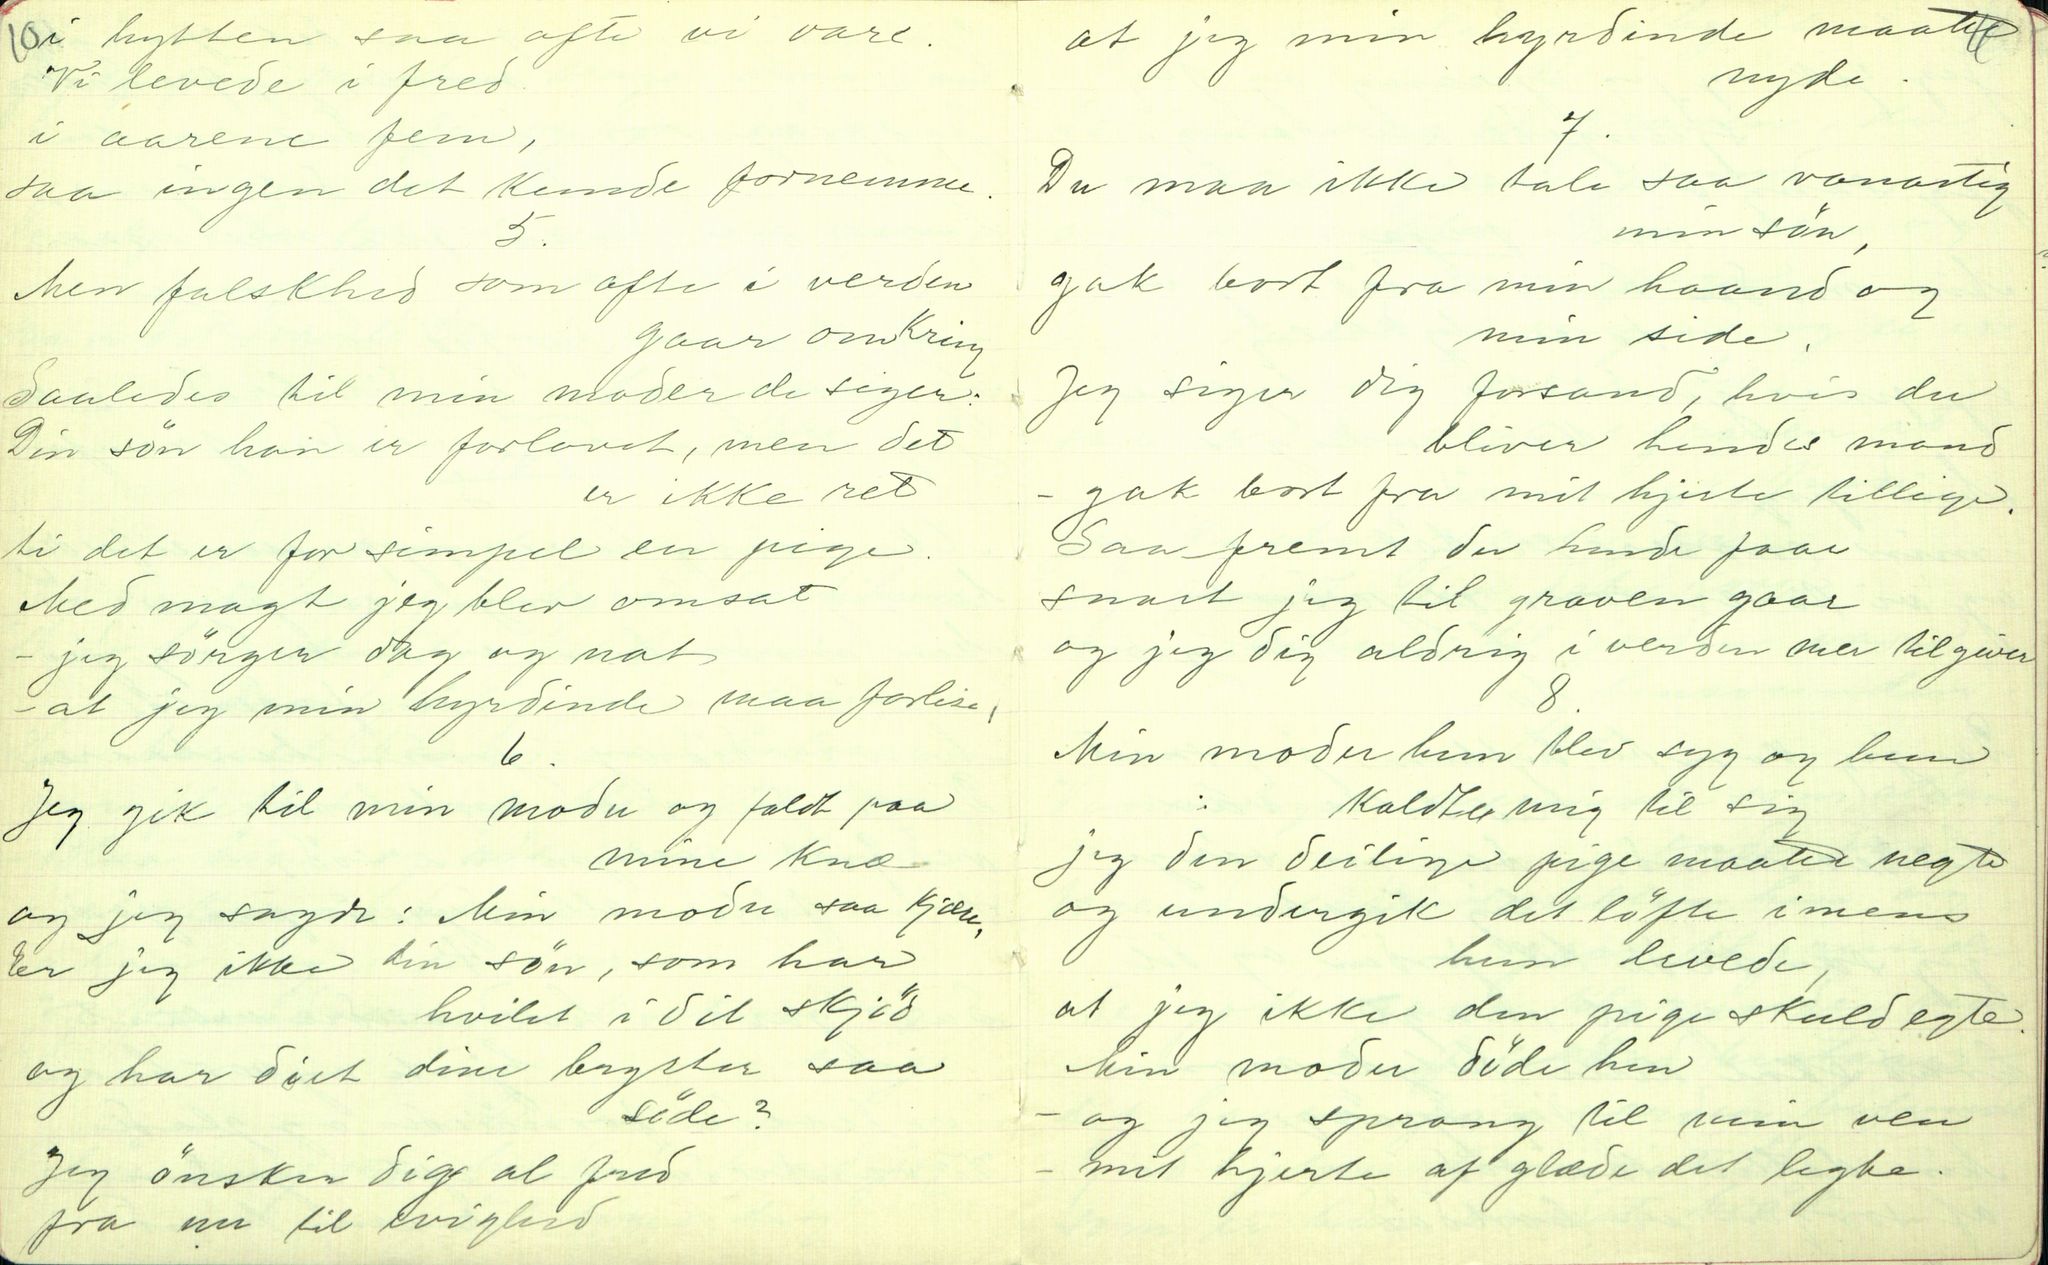 10
i hytten saa ofte vi vare.
Vi levede i fred
i aarene fem,
saa ingen det kunde fornemme.
5.
Men falskhed som ofte i verden
gaar omkring
Saaledes til min moder de siger:
Din sön han er forlovet, men det
er ikke ret
ti det er for simpel en pige.
Med magt jeg blev omsat
- jeg sörger dag og nat
- at jeg min hyrdinde maa forlise,
6.
Jeg gik til min moder og faldt paa
mine knæ
og jeg sagde: Min moder saa kjære,
Er jeg ikke din sön, som har
hvilet i dit skjöd
og har diet dine bryster saa
söde?
Jeg önsker dig al fred
fra nu til evighed
at jeg min hyrdinde maatte
nyde.
7.
Du maa ikke tale saa vanartig
min sön,
gak bort fra min haand og
min side.
Jeg siger dig forsand, hvis du
bliver hendes mand
- gak bort fra mit hjerte tillige.
Saa fremt du hende faar
snart jeg til graven gaar
og jeg dig aldrig i verden mer tilgiver
8.
Min moder hun blev syg og hun
kaldte mig til sig
jeg den deilige pige maatte negte
og undergik det löfte imens
hun levede,
at jeg ikke den pige skuld egte.
Min moder döde hen
- og jeg sprang til min ven
- mit hjerte af glæde det legte.